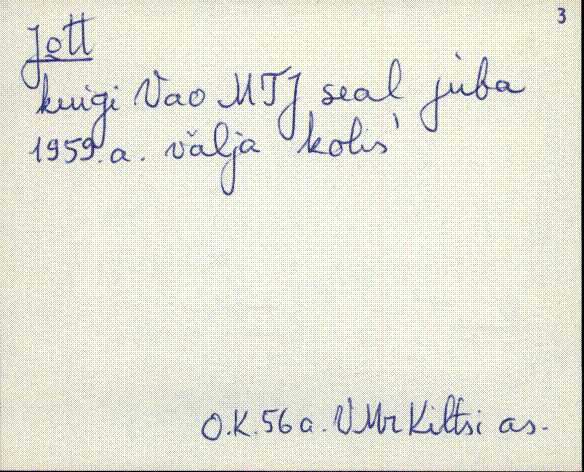 3
Jott
kuigi Vao MTJ seal juba
1959.a. välja kolis'
O.K. 56 a. VMr Kiltsi as.